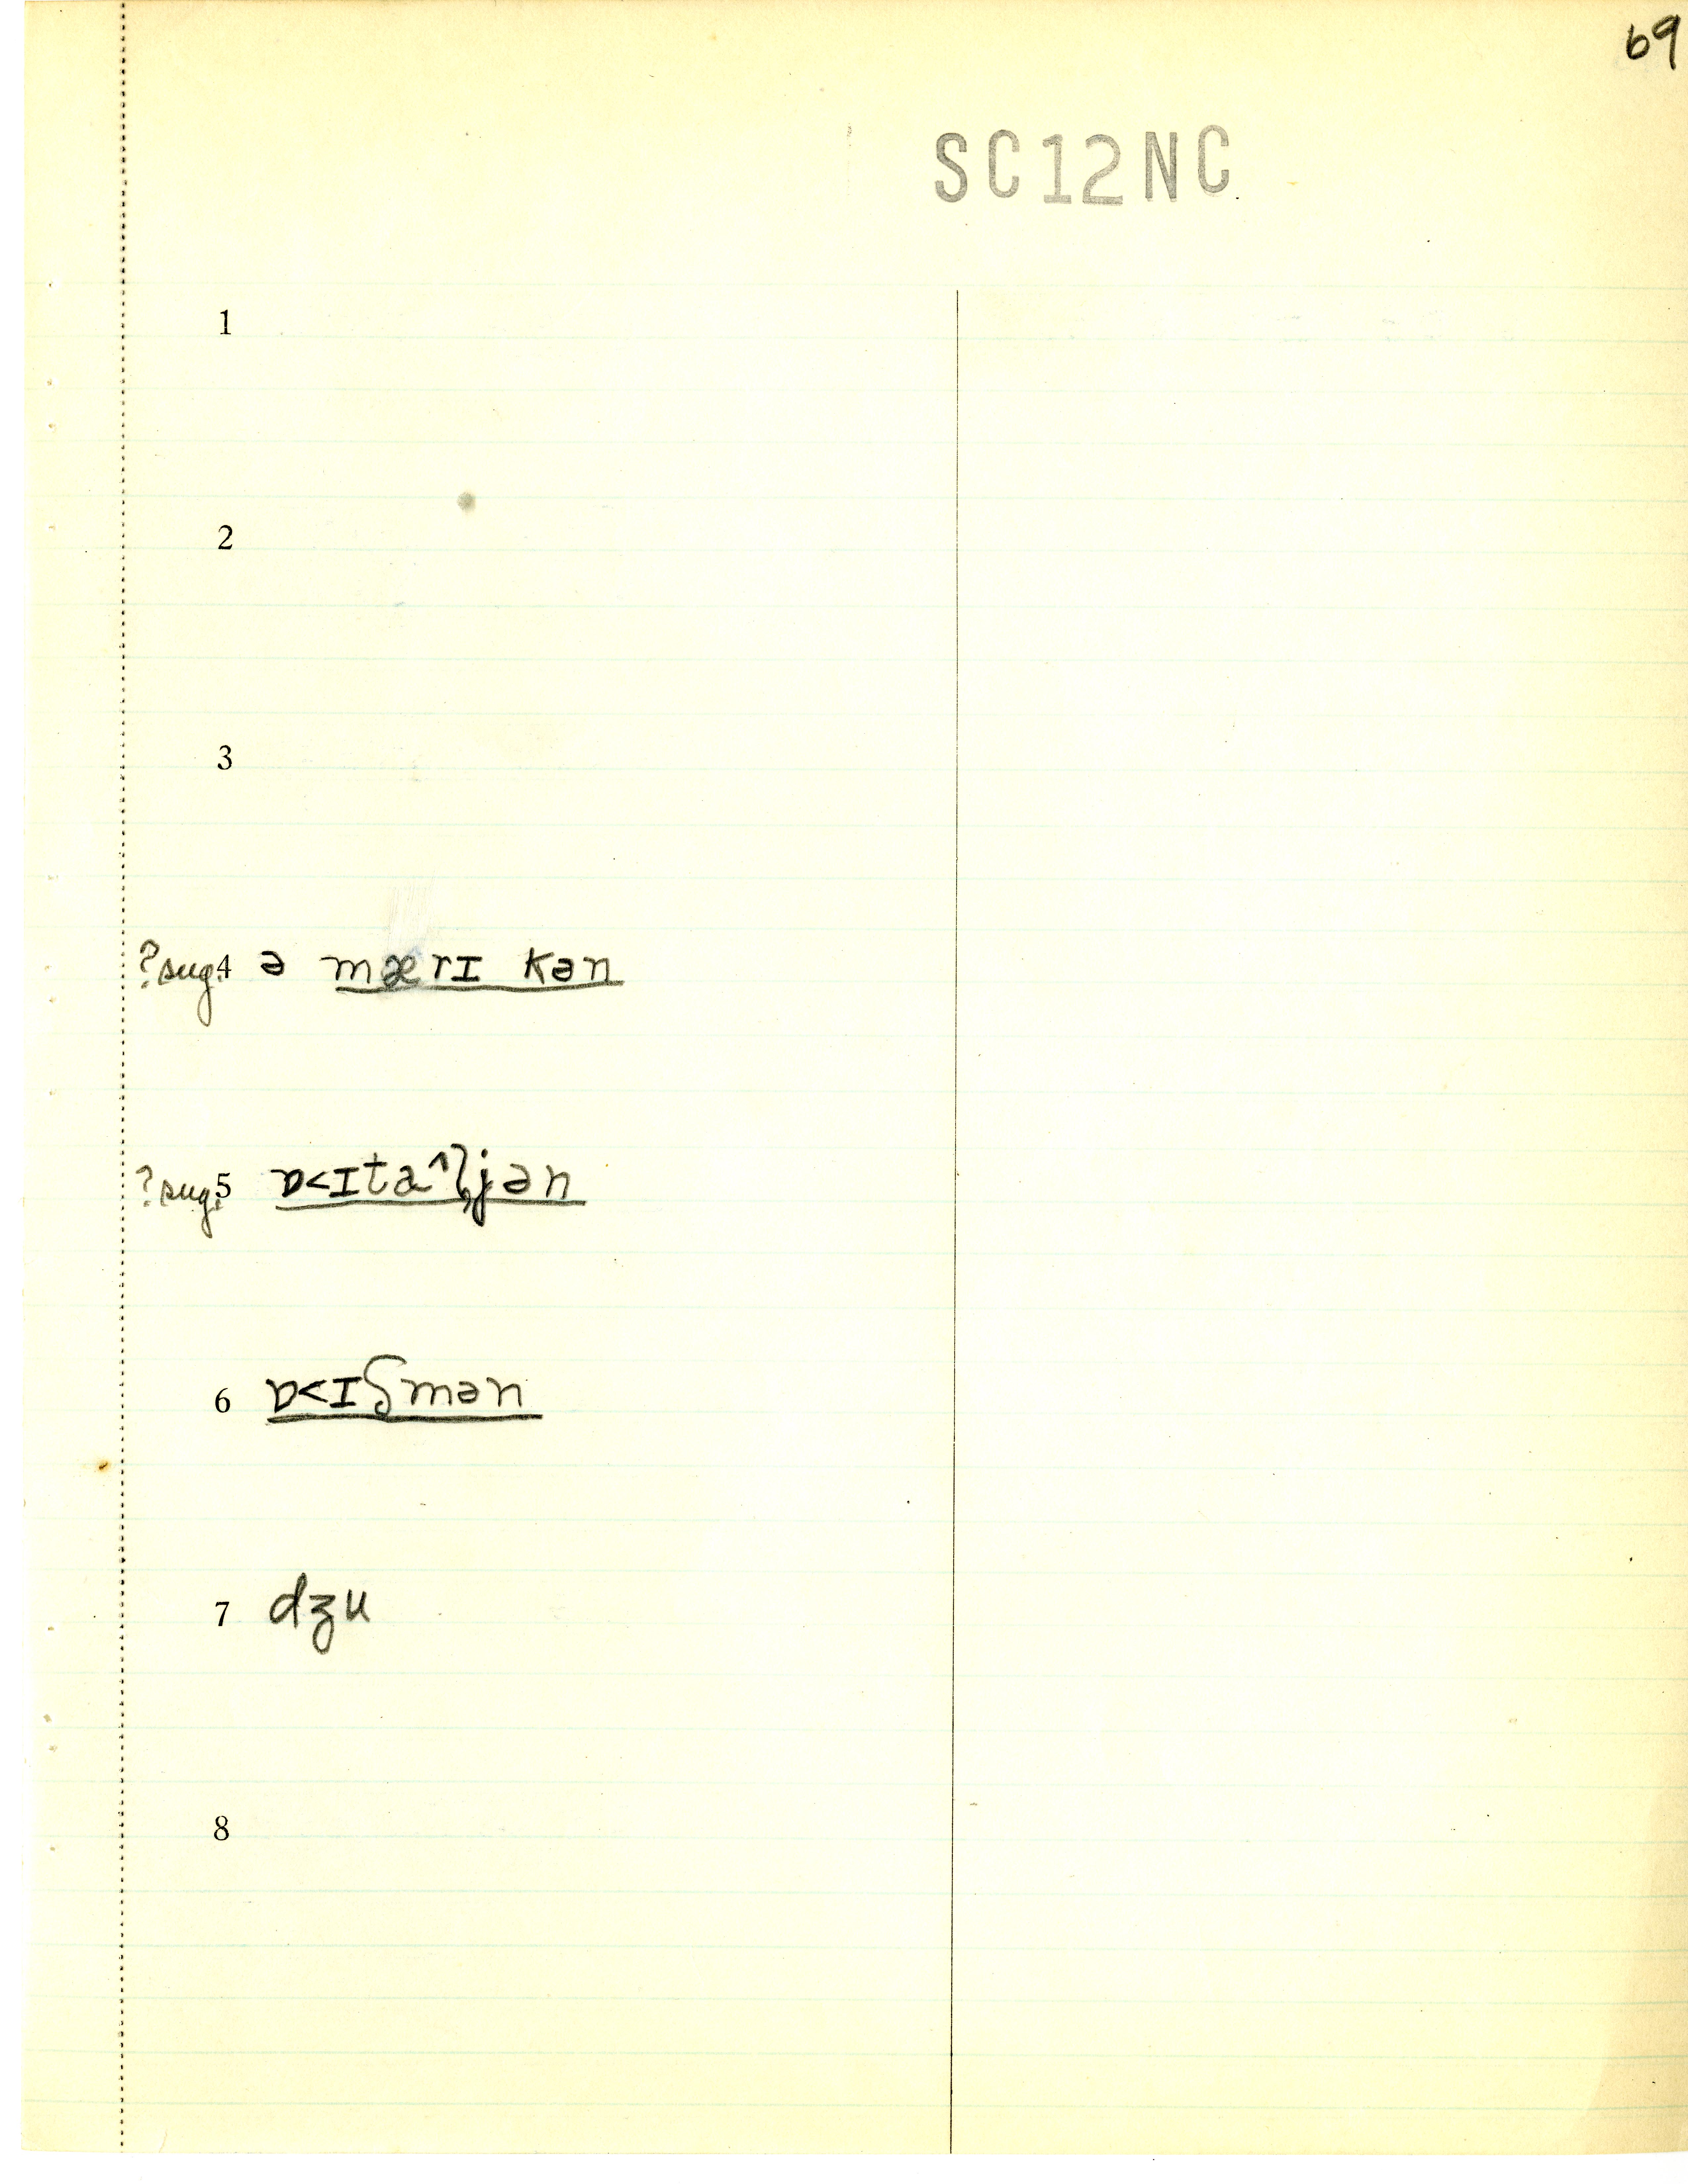 69
SC12NC
1
2
3
?sug. 4 ə mærɪ kən
?sug. 5 ɒ<ɪta^l̥jən
6 ɒ<ɪʃmən
7 dʒu
8